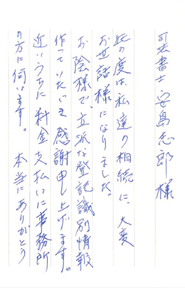 司法書士 安島忠郎 様
此の度は、私達の相続に、大変
お世話様になりました。
お陰様で立派な登記識別情報
作っていたいき感謝申し上げます。
近いうちに料金支払いに事務所
の方に伺います。 本当にありがとう